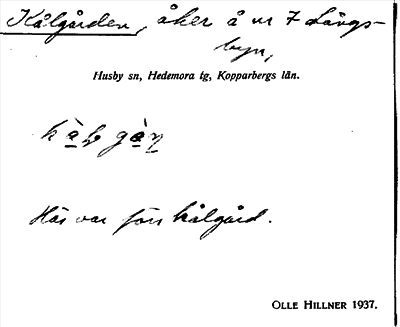 Kålgården, åker å nr 7 Långs-
byn,
Husby sn, Hedemora tg, Kopparbergs län.
Här var förr kålgård.
OLLE HILLNER 1937.